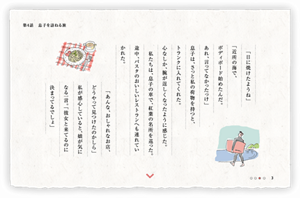 第4話　息子を訪ねる旅
「日に焼けたようね」
「近所の海で、
ボディボード始めたんだ。
あれ、言ってなかったっけ」
息子は、さっと私の荷物を持つと、
トランクに入れてくれた。
心なしか、腕が逞しくなったように感じた。
私たちは、息子の車で、紅葉の名所を巡った。
途中、パスタのおいしいレストランへも連れてい
かれた。
「あんな、おしゃれなお店、
どうやって見つけたのかしら」
私が感心していると、娘が気に
なる一言。「彼女と来てるのに
決まってるでしょ」
3